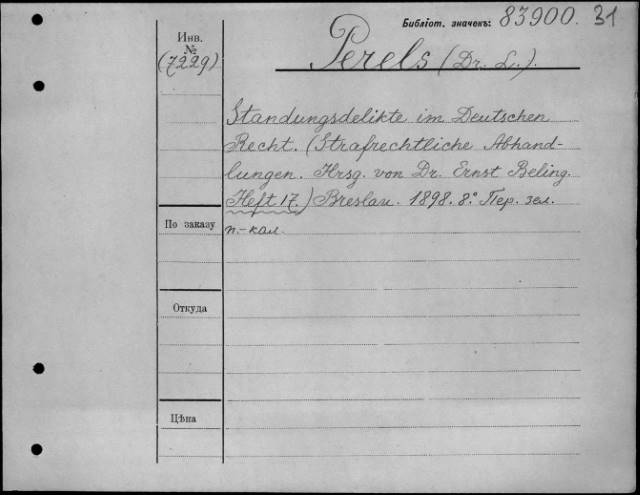 Библіот. значекъ: 83900. 31
Инв.
№
(7229)
Perels (Dr. L.).
Standungsdelikte im Deutschen
Recht. (Strafrechtliche Abhand-
lungen. Hrsg. von Dr. Ernst Beling.
Heft 17.) Breslau. 1898. 8.° Пер. зел.
п.-кал.
По заказу
Откуда
Цѣна